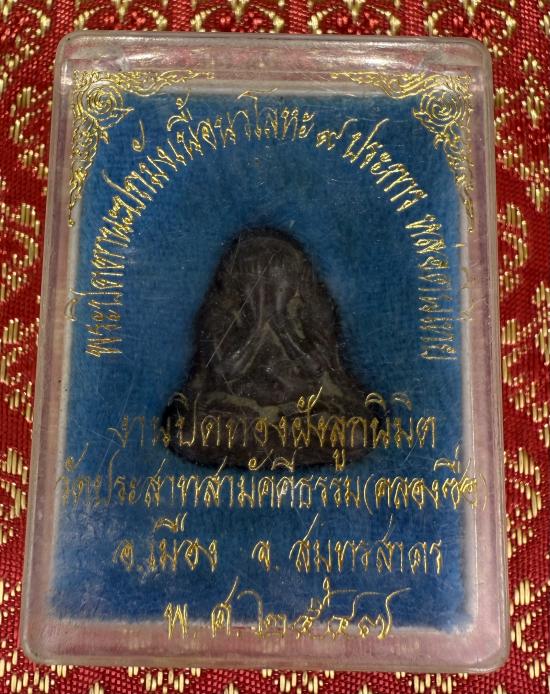 พระปิดตานะปถมังเนื้อนวโลหะ ๙ ประการ หล่อดินไทย
งานปิดทองฝังลูกนิมิต
วัดประสาทสามัคคีธรรม(คลองซื่อ)
อ.เมือง จ. สมุทรสาคร
พ.ศ.๒๕๔๗